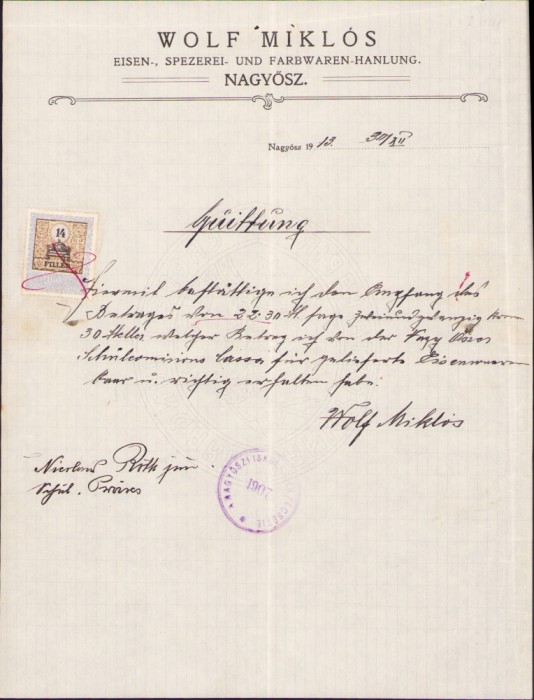 WOLF MIKLÓS
EISEN-, SPEZEREI- UND FARBWAREN-HANLUNG.
NAGYŐSZ.
Nagyősz 1913. 30/XII
Quittung
14
FILLÉR
Hiermit bestättige ich den Empfang des
Betrages von 22.30 H. sage Zweiundzwanzig Kron
30 Heller welcher Betrag ich von der Nagy
Schulcomisions Cassa für gelieferte Eisenwaaren
baar u. richtig erhalten habe.
Wolf Miklós
Nicolaus Röth jun.
Schul.
A NAGYŐSZI
1907